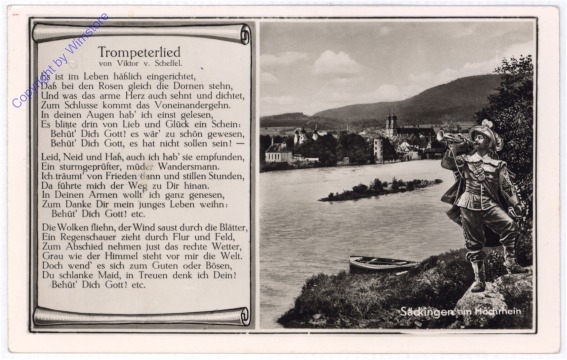 Trompeterlied
von Viktor v. Scheffel.
Es ist im Leben häßlich eingerichtet,
Daß bei den Rosen gleich die Dornen stehn,
Und was das arme Herz auch sehnt und dichtet,
Zum Schlusse kommt das Voneinandergehn.
In deinen Augen hab' ich einst gelesen,
Es blitzte drin von Lieb und Glück ein Schein:
Behüt' Dich Gott! es wär' zu schön gewesen,
Behüt' Dich Gott, es hat nicht sollen sein! —
Leid, Neid und Haß, auch ich hab' sie empfunden,
Ein sturmgeprüfter, müder Wandersmann.
Ich träumt' von Frieden dann und stillen Stunden,
Da führte mich der Weg zu Dir hinan.
In Deinen Armen wollt' ich ganz genesen,
Zum Danke Dir mein junges Leben weihn:
Behüt' Dich Gott! etc.
Die Wolken fliehn, der Wind saust durch die Blätter,
Ein Regenschauer zieht durch Flur und Feld,
Zum Abschied nehmen just das rechte Wetter,
Grau wie der Himmel steht vor mir die Welt.
Doch wend' es sich zum Guten oder Bösen,
Du schlanke Maid, in Treuen denk ich Dein!
Behüt' Dich Gott! etc.
Säckingen am Hochrhein
Copyright by Winstore